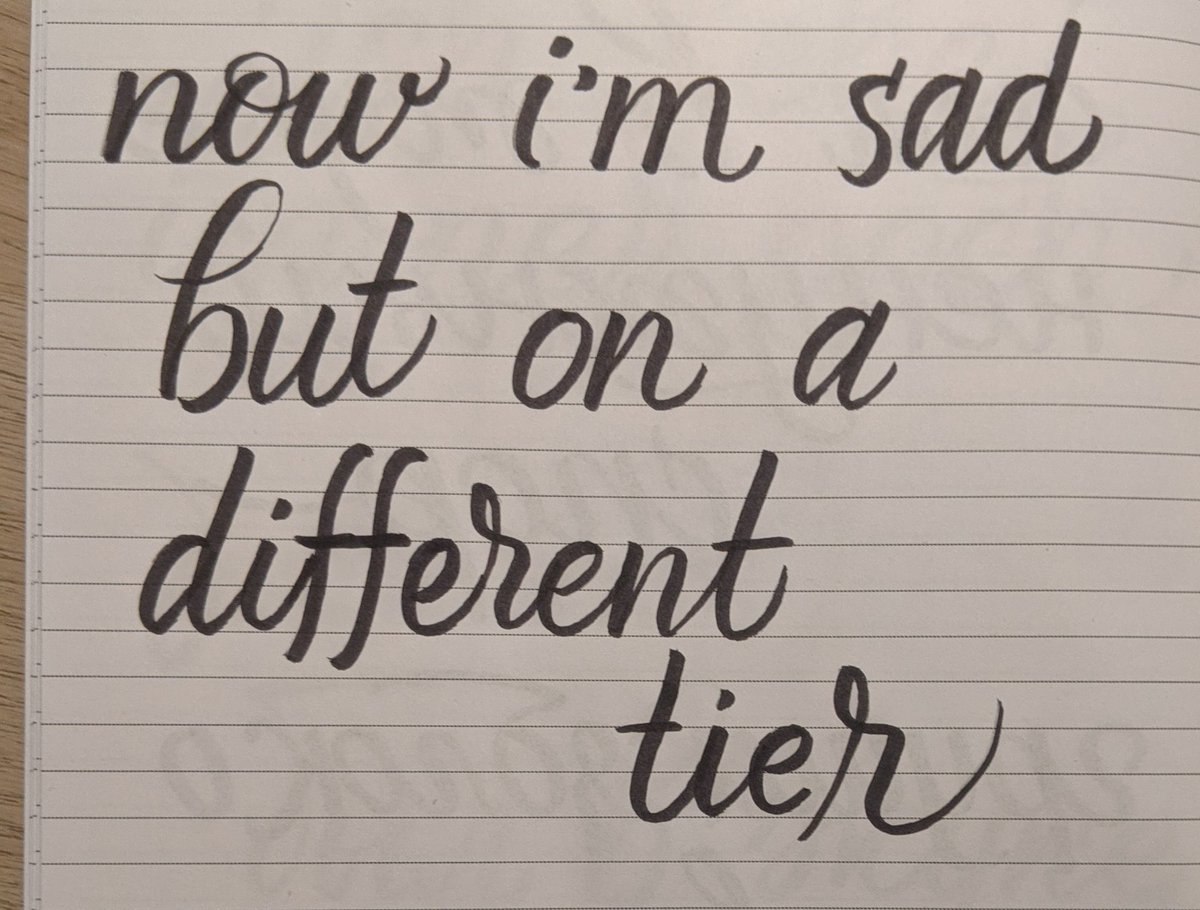 now i'm sad
but on a
different
tier